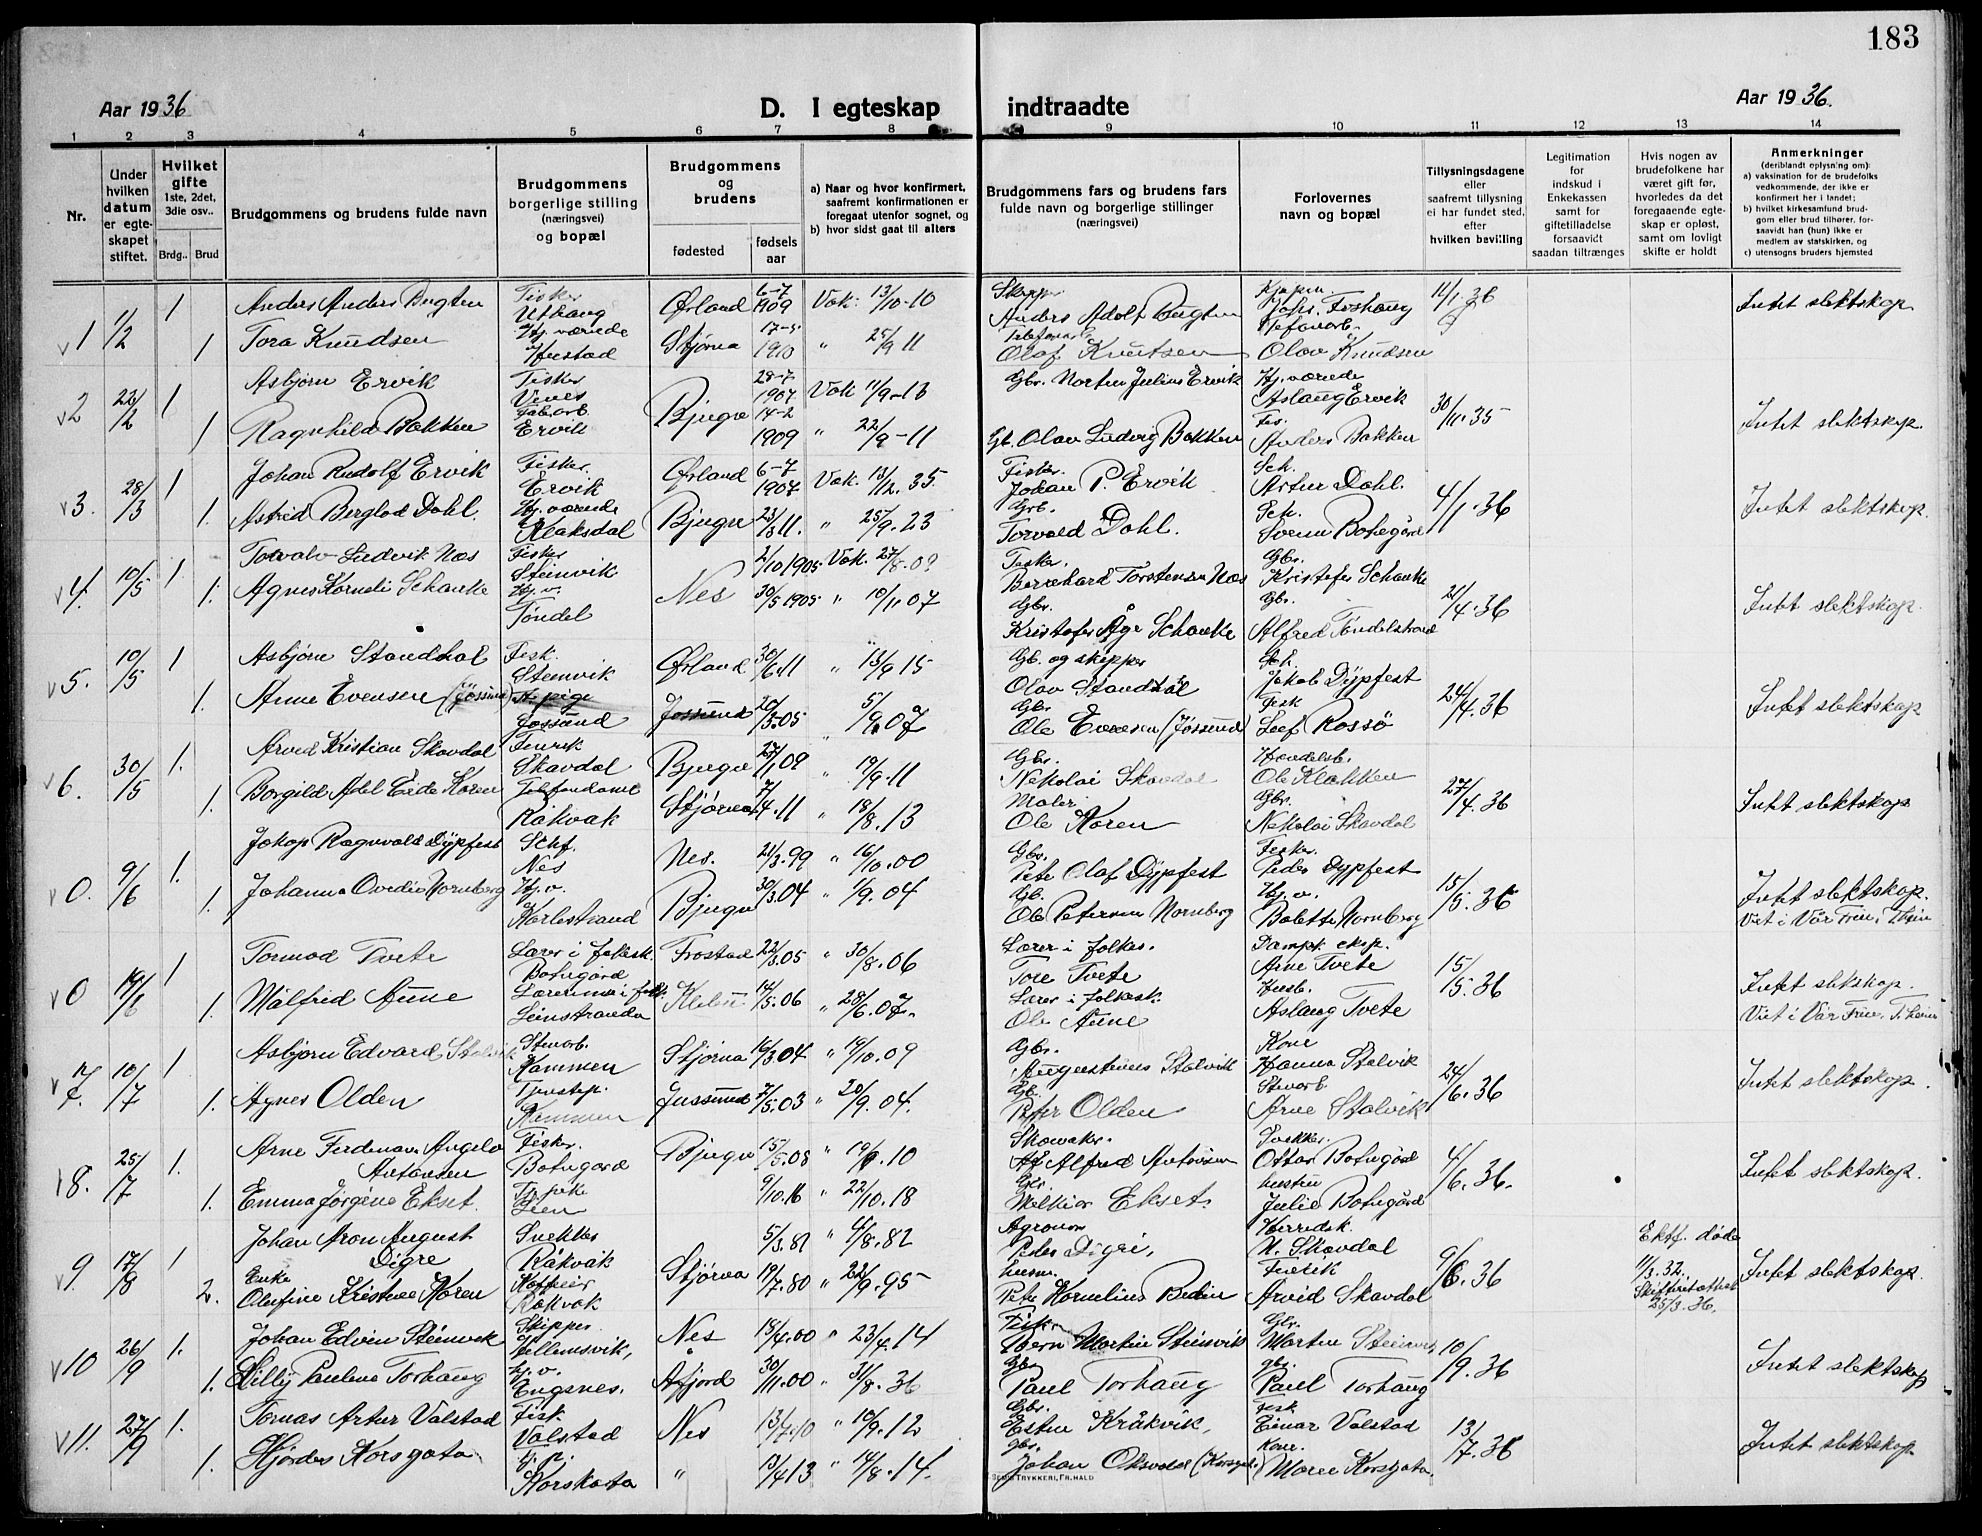 183
Aar 1936
D. I egteskap indtraadte
Aar 1936.
1 2 3 4 5 6 7 8 9 10 11 12 13 14
Nr.
Under hvilken datum er egteskapet stiftet.
Hvilket gifte 1ste, 2det, 3die osv..
Brdg.. Brud
Brudgommens og brudens fulde navn
Brudgommens borgerlige stilling (næringsvei) og bopæl
Brudgommens og brudens
fødested
fødselsaar
a) Naar og hvor konfirmert, saafremt konfirmationen er foregaat utenfor sognet, og
b) hvor sidst gaat til alters
Brudgommens fars og brudens fars fulde navn og borgerlige stillinger (næringsvei)
Forlovernes navn og bopæl
Tillysningsdagene eller saafremt tillysning ei har fundet sted, efter hvilken bevilling
Legitimation for indskud i Enkekassen samt for giftetilladelse forsaavidt saadan tiltrænges
Hvis nogen av brudefolkene har været gift før, hvorledes da det foregaaende egteskap er opløst, samt om lovligt skifte er holdt
Anmerkninger (deriblandt oplysning om):
a) vaksination for de brudefolks vedkommende, der ikke er konfirmert her i landet;
b) hvilket kirkesamfund brudgom eller brud tilhører, forsaavidt han (hun) ikke er medlem av statskirken, og
c) utensogns bruders hjemsted
v1 1/2 1 Anders Anders Bugten Fisker Uthaug Ørland 6-7 1909 Vak. 13/10-10 Anders Adolf Bugten Johs. Foshaug 11/1 36 Intet slektskap
1 Tora Knudsen Hj.værende Stjørna 1910 " 25/9 11 Olaf Knutsen Olav Knudsen
v2 22/2 1 Asbjørn Ervik Fisker 28-7 1907 Vak 11/9-13 Gbr. Morten Julius Ervik Hj.værende Aslaug Ervik 30/11.35 Intet slektskap.
1 Ragnhild Bakken Fab.arb. Ervik Bjugn 14-2 1909 " 22/9-11 Gb. Olav Ludvig Bakken Fis. Anders Bakken
v3. 28/3 1 Johan Rudolf Ervik Fisker. Ervik Ørland 6-7 1907 Vak. 13/12.35 Fisker. Johan P. Ervik Artur Dahl. 4/1.36 Intet slektskap.
1. Astrid Berglad Dahl. Hj.værende Bjugn 23/3 11. " 25/9.23 Gbr. Torvald Dahl. Svenn Botngård
v4. 10/5 1 Ludvik Næs Fisker Steinvik 2/10 1905 Vak. 27/8.09 Fisker. Bernhard Torstensen Næs Gbr. Kristofer Schanke 21/4.36 Intet slektskap.
1. Agnes Korneli Schanke Hj.v. Tøndel Nes 30/5 1905 " 10/11 07 Gbr. Kristofer Åge Schanke Gbr. Alfred Tøndelstrand
v5. 10/5 1 Asbjørn Standhal Fisk. Steinvik Ørland 30/6.11 " 13/9 15 Gb. og skipper Olav Standhal Jakob Dypfest 24/4.36 Intet slektskap
1. Anne Evensen (Jøssund) pige Jøssund Jøssund 20/3.05 5/9.07 Gbr Ole Evensen (Jøssund) Fisk Leif Rossø
v6. 30/5 1. Arvid Kristian Skavdal Skavdal Bjugn 27/1.09 " 19/9.11 Gbr. Nikolai Skavdal Handelsb. Ole Klakken 27/4.36 Intet slektskap
1. Borgild Adel Eide Koren Råkvåk Stjørna 7/4.11 " 18/8.13 Maler. Ole Koren Gbr. Nikolai Skavdal
v0. 9/6 1. Jakop Ragnvald Dypfest Nes Nes. 21/3.99 " 16/10.00 Gbr. Peter Olaf Dypfest Fisker. Peder Dypfest 15/5.36 Intet slektskap.
1. Johanna Ovedie Nornberg Hj.v. Karlestrand Bjugn 30/3.04 " 1/9.04 Gb. Ole Petersen Nornberg Hj.v. Bolette Nornberg Viet i Vår Frue, Thjem
v0 14/6 1 Tormod Tvete Lærer i folkesk. Botngård Frostad 22/3.05 " 30/8.06 Lærer i folkes. Tore Tvete Dampk. eksp. Arne Tvete 15/5.36 Intet slektskap.
1. Målfrid Aune Lærerinne i folk. Leinstranda Klæbu 14/5.06 " 28/6.07. Lærer i folkesk. Ole Aune Husb. Aslaug Tvete Viet i Vår Frue, T.heim
v7. 10/7 1 Asbjørn Edvard Stenarb. Kammen Stjørna 16/3.04 " 19/10.09 Gbr. Augustinus Stalvik Kone Hanna Stalvik 24/6.36 Intet slektskap.
1. Agnes Olden Tjenestep. Jøssund 7/5.03 " 20/9.04. Gb. Peter Olden Stenarb. Arne Stalvik
v8. 25/7 1. Arne Ferdinan Angelo Antonsen Fisker. Botngård Bjugn 15/5.08 " 19/9.10 Skomaker. Alfred Antonsen Ottar Botngård 4/6.36. Intet slektskap.
1. Emma Jørgine Ekset. 9/10.16 " 22/10.18 Gbr. Melkior Ekset. hustru Julie Botngård
v9. 17/8 1 Johan Aron August Digre Snekker Råkvåk 5/3.81 " 4/8.82 Agronom Peder Digre, Herredsk. N. Skavdal 9/6.36 Ektf. døde 11/3.32. Skifteretattest 25/3.36. Intet slektskap.
2. Enke Olufine Kristine Koren Råkvåk Stjørna 19/7.80 " 22/9.95 husm. Peter Kornelius Arvid Skavdal
v10 26/9 1. Johan Edvin Steinvik Skipper Nes 18/4.00 " 23/4.14 Fisk. Martin Steinvik Gbr. Martin Steinvik 10/9.36 Intet slektskap
1. Lilly Pauline Torhaug hj.v. Engsnes. Åfjord 30/11.00 " 31/8.36 Gbr Paul Torhaug gbr. Paul Torhaug
v11. 27/9 1. Tomas Artur Valstad Fisk. Valstad Nes 13/7.10 " 10/9.12 Gbr. Kråkvik, Fisk. Einar Valstad 13/7.36 Intet slektskap.
1. Hjørdis Korsgata Korskata " 13/4 13 " 14/8.14. gbr. Johan Oksvold (Korsgat.) Kone. Maren Korsgata.
TRYKKERI, FR.HALD